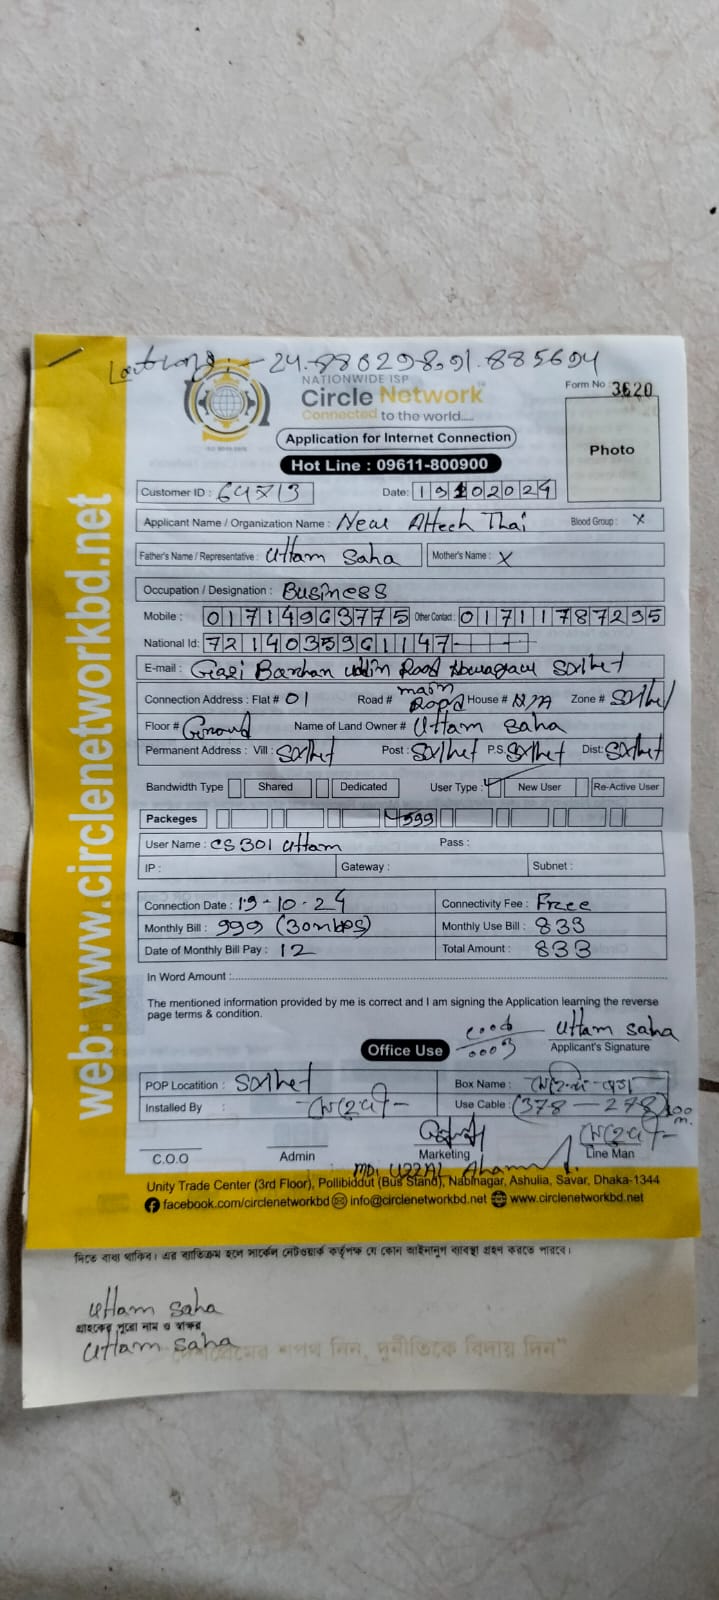 24.880298,91.885694
NATIONWIDE ISP
Circle Network
Connected to the world....
Form No 3620
Photo
Application for Internet Connection
Hot Line : 09611-800900
Customer ID : 64713 Date: 19102024
Applicant Name / Organization Name : New Altech Thai Blood Group : X
Father's Name / Representative : Uttam Saha Mother's Name : X
Occupation / Designation : Business
Mobile : 01714963775 Other Contact : 01711787295
National Id: 7214035961147
E-mail : Gazi Burhan uddin Road Sylhet
Connection Address : Flat # 01 Road # main Road House # N/A Zone # Sylhet
Floor # Ground Name of Land Owner # Uttam Saha
Permanent Address : Vill : Sylhet Post : Sylhet P.S. Sylhet Dist: Sylhet
Bandwidth Type Shared Dedicated User Type : ✓ New User Re-Active User
Packeges 599
User Name : CS301 uttam Pass :
IP : Gateway : Subnet :
Connection Date : 19-10-24 Connectivity Fee : Free
Monthly Bill : 999 (30mbps) Monthly Use Bill : 833
Date of Monthly Bill Pay : 12 Total Amount : 833
In Word Amount :
The mentioned information provided by me is correct and I am signing the Application learning the reverse
page terms & condition.
Uttam Saha
Office Use Applicant's Signature
POP Locatition : Sylhet Box Name :
Installed By : Use Cable : (378 - 278) 100 m.
C.O.O Admin Marketing Line Man
MD. UZZAL Ahammed
Unity Trade Center (3rd Floor), Pollibiddut (Bus Stand), Nabinagar, Ashulia, Savar, Dhaka-1344
facebook.com/circlenetworkbd info@circlenetworkbd.net www.circlenetworkbd.net
web: www.circlenetworkbd.net
দিতে বাধ্য থাকিব। এর ব্যতিক্রম হলে সার্কেল নেটওয়ার্ক কর্তৃপক্ষ যে কোন আইনানুগ ব্যবস্থা গ্রহন করতে পারবে।
Uttam Saha
গ্রাহকের পুরো নাম ও স্বাক্ষর
Uttam Saha
দেশপ্রেমের শপথ নিন, দুর্নীতিকে বিদায় দিন"